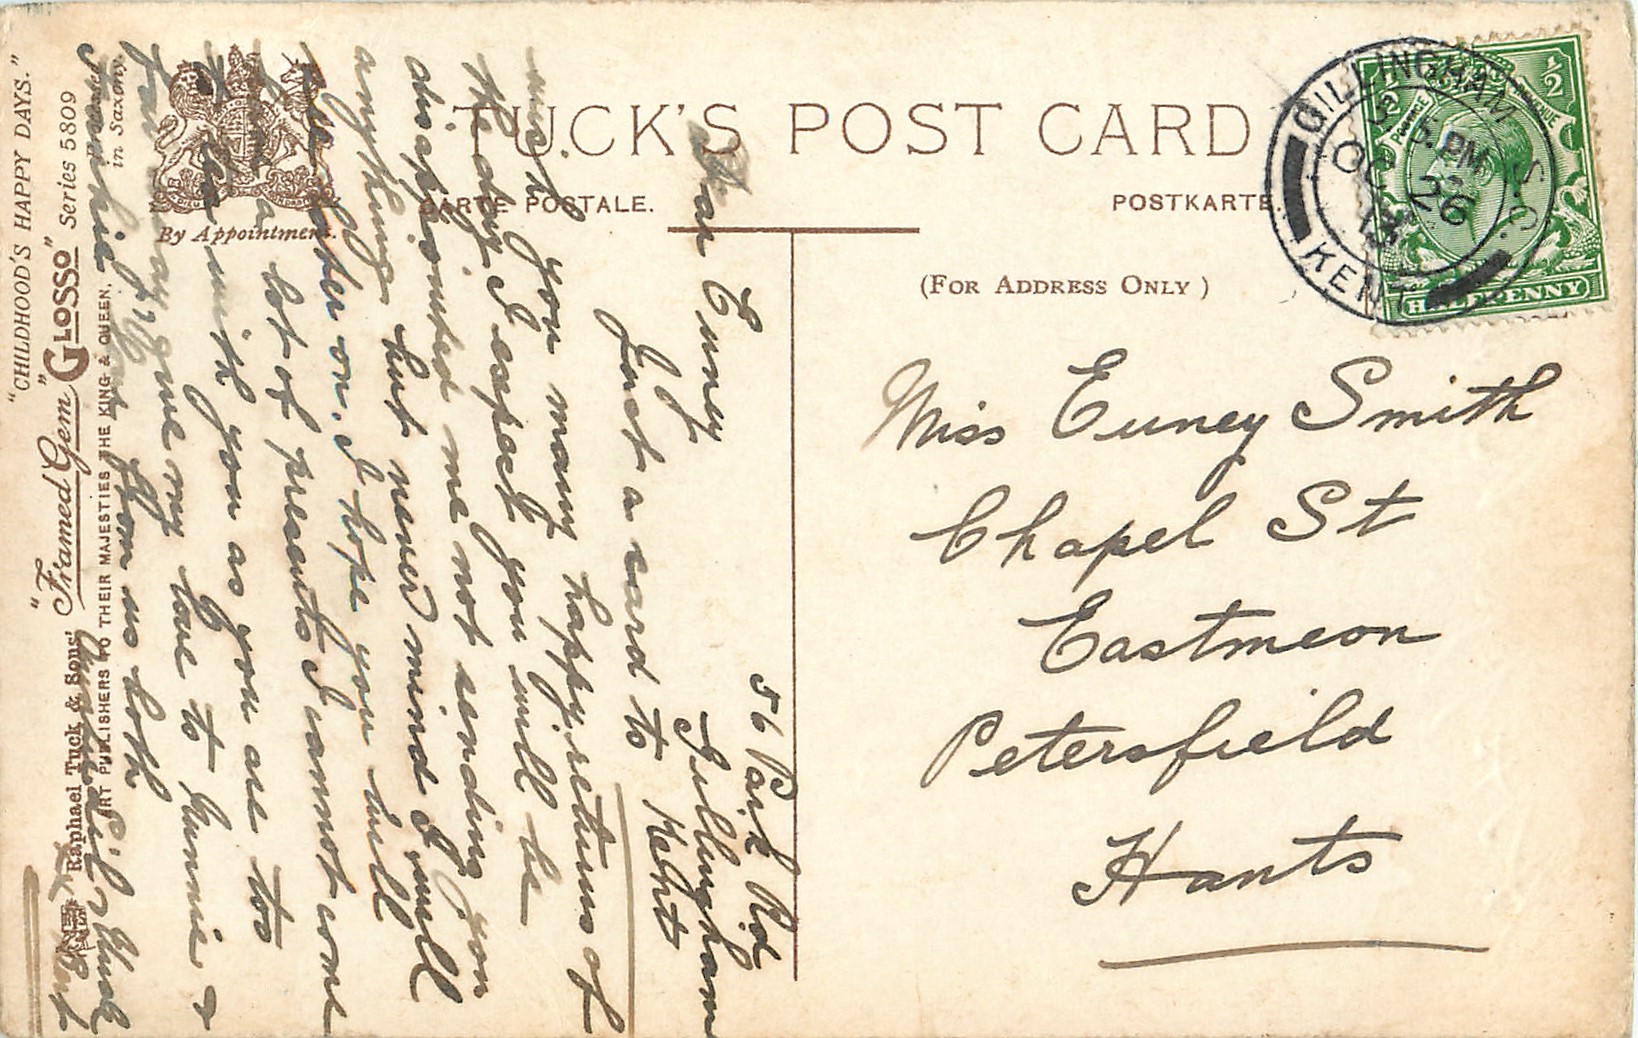 TUCK'S POST CARD
CARTE POSTALE.
POSTKARTE.
(For Address Only)
By Appointment.
GILLINGHAM S.O.
KENT
PM
OC 26
13
POSTAGE
REVENUE
1/2
HALFPENNY
Miss Euney Smith
Chapel St
Eastmeon
Petersfield
Hants
56 Park Rd
Gillingham
Kent
Dear Euney
Just a card to
wish you many happy returns of
the day I expect you will be
disappointed me not sending you
anything but never mind I will
later on. I hope you will
have a lot of presents I cannot come
to tea with you as you are too
far away give my love to &
from us both
"CHILDHOOD'S HAPPY DAYS."
"Framed Gem" "Glosso" Series 5809
Raphael Tuck & Sons'
ART PUBLISHERS TO THEIR MAJESTIES THE KING & QUEEN.
in Saxony.